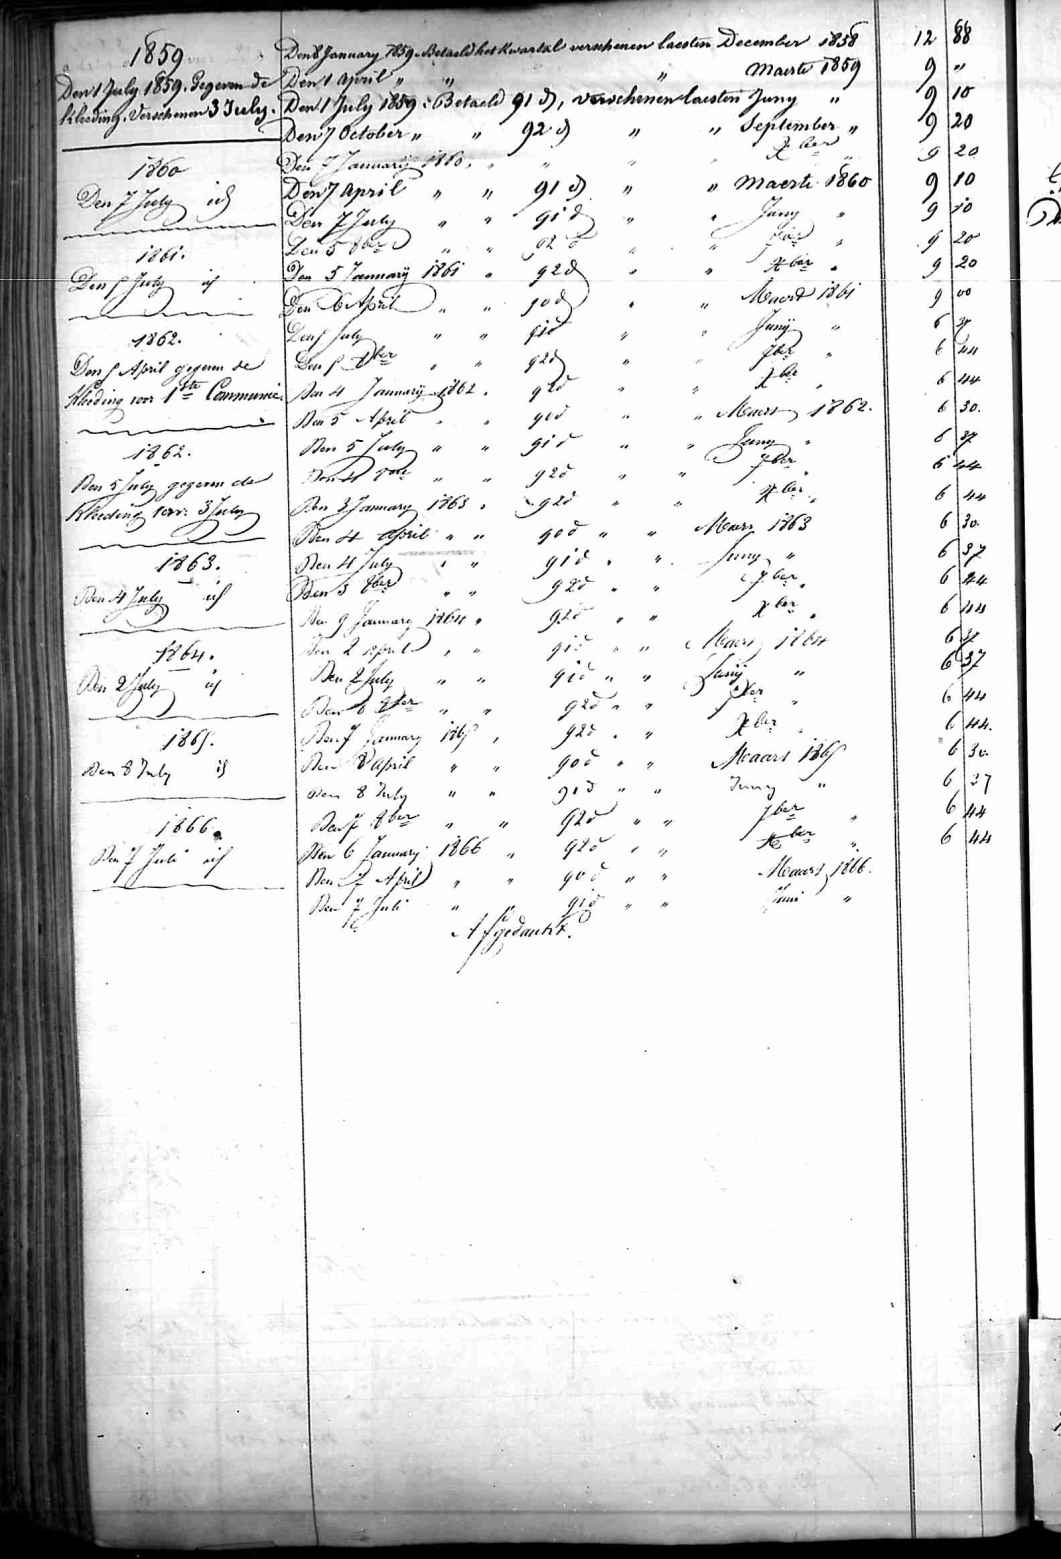 1859
Den 1 July 1859. Gegeven de
kleeding. Verschenen 3 July.
1860
Den 7 July id
1861.
Den 5 July id
1862.
Den 5 April gegeven de
Kleeding voor 1ste Communie
1862.
Den 5 July gegeven de
Kleeding verv. 3 July
1863.
Den 4 July id
1864.
Den 2 July id
1865.
Den 8 July id
1866.
Den 7 Juli id
Den 8 January 1859. Betaeld het Kwartal verschenen laesten December 1858 12 88
Den 1 April " " " Maerte 1859 9 "
Den 1 July 1859. Betaeld 91 d, verschenen laesten Juny " 9 10
Den 7 October " " 92 d " " September " 9 20
Den 7 January 1860. " " " " Xber " 9 20
Den 7 April " " 91 d " " Maerte 1860 9 10
Den 7 July " " 91 d " " Juny " 9 10
Den 5 8ber " " 92 d " " 7ber " 9 20
Den 5 January 1861 " 92 d " " Xber " 9 20
Den 6 April " " 90 d " " Maert 1861 9 00
Den 5 July " " 91 d " " Juny " 6 37
Den 5 8ber " " 92 d " " 7ber " 6 44
Den 4 January 1862 . 92 d " " Xber " 6 44
Den 5 April " " 90 d " " Maers 1862. 6 30.
Den 5 July " " 91 d " " Juny " 6 37
Den 4 8ber " " 92 d " " 7ber " 6 44
Den 3 January 1863 . 92 d " " Xber " 6 44
Den 4 April " " 90 d " " Maers 1863 6 30
Den 4 July " " 91 d " " Juny " 6 37
Den 3 8ber " " 92 d " " 7ber " 6 44
Den 9 January 1864 " 92 d " " Xber " 6 44
Den 2 April " " 91 d " " Maers 1864 6 37
Den 2 July " " 91 d " " Juny " 6 37
Den 8 8ber " " 92 d " " 7ber " 6 44
Den 7 January 1865 , 92 d " " Xber " 6 44.
Den 8 April " " 90 d " " Maars 1865 6 30
Den 8 July " " 91 d " " Juny " 6 37
Den 7 8ber " " 92 d " " 7ber " 6 44
Den 6 January 1866 " 92 d " " Xber " 6 44
Den 7 April " " 90 d " " Maars 1866.
Den 7 Juli " " 91 d " " Juni "
Afgedankt.